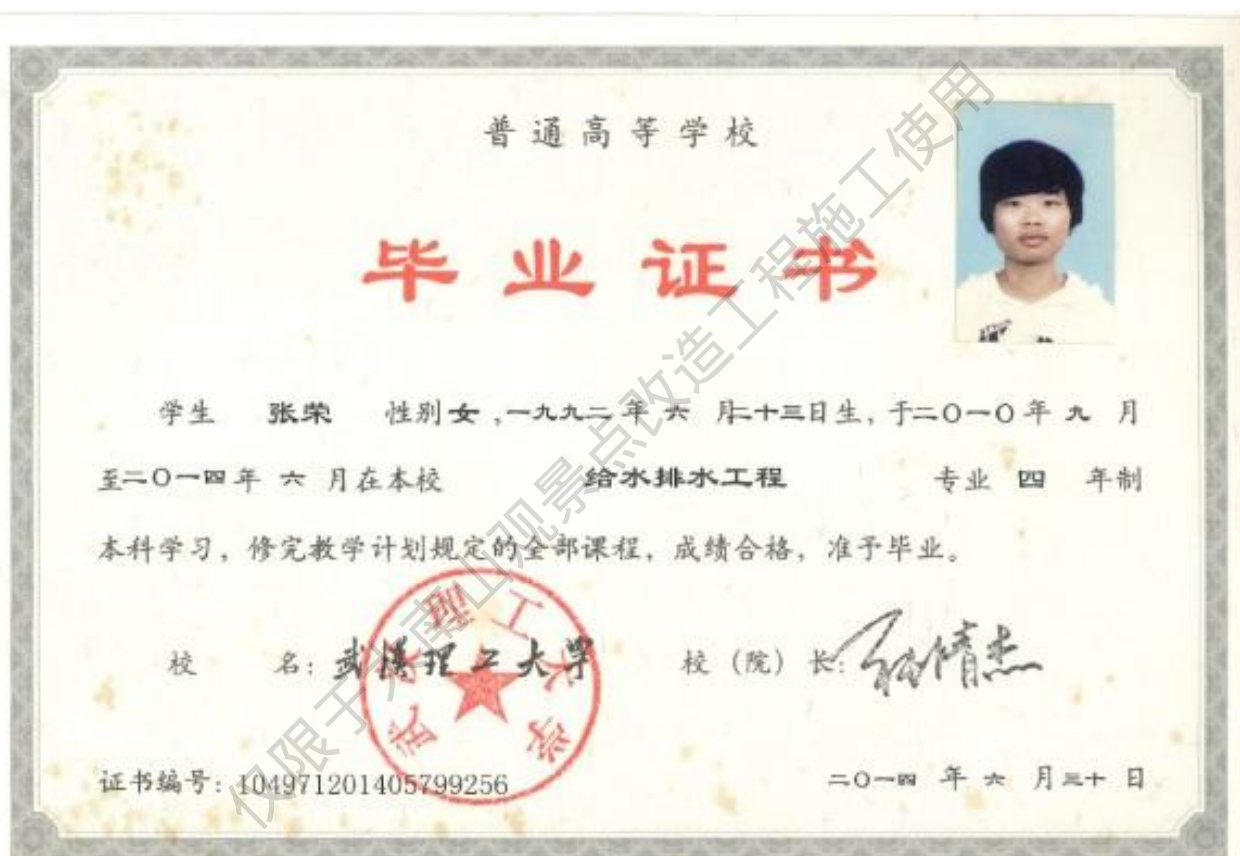 普通高等学校
毕业证书
学生 张荣 性别女,一九九二年 六 月二十三日生,于二〇一〇年 九 月
至二〇一四年 六 月在本校 给水排水工程 专业 四 年制
本科学习,修完教学计划规定的全部课程,成绩合格,准予毕业。
校 名:武汉理工大学 校(院)长:
武汉理工大学
证书编号:104971201405799256 二〇一四 年 六 月三十 日